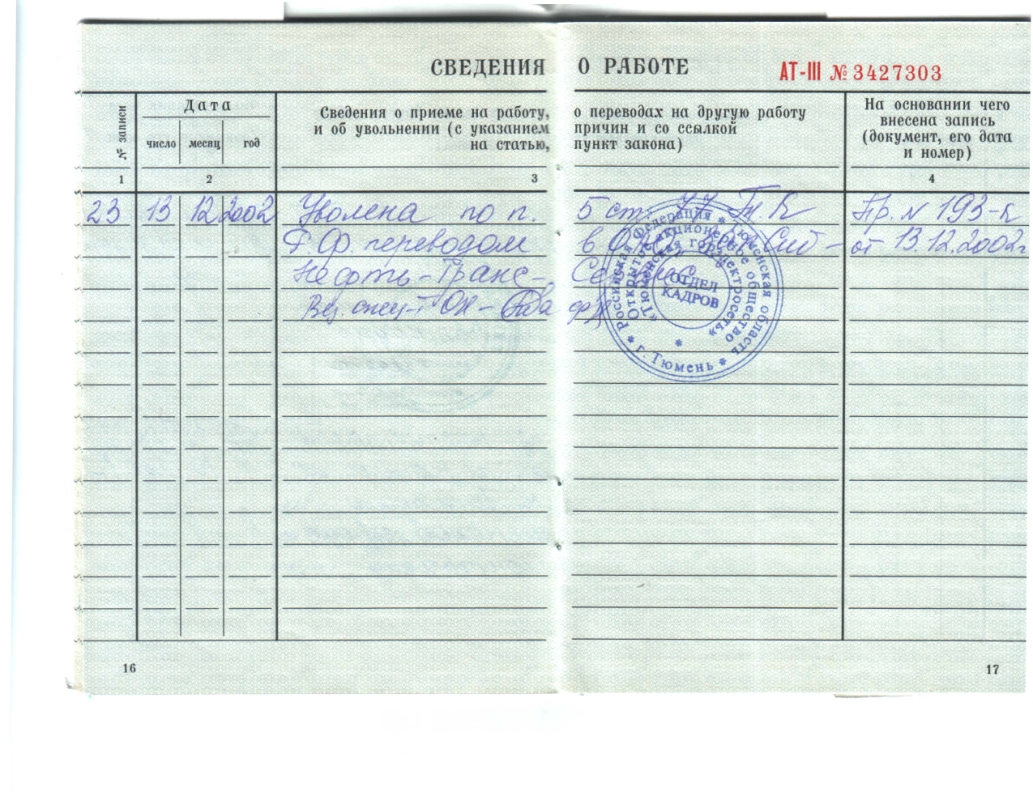 СВЕДЕНИЯ О РАБОТЕ
АТ-III № 3427303
№ записи
Дата
число месяц год
Сведения о приеме на работу, о переводах на другую работу
и об увольнении (с указанием причин и со ссылкой
на статью, пункт закона)
На основании чего
внесена запись
(документ, его дата
и номер)
1 2 3 4
23 13 12 2002 Уволена по п. 5 ст. 77 Тк Пр. № 193-к
РФ переводом в Сиб- от 13.12.2002г
Нефть-Транс- Сервис
Российская Федерация * Тюменская область
* г. Тюмень *
Открытое акционерное общество
"Тюменская горэлектросеть"
ОТДЕЛ
КАДРОВ
16
17